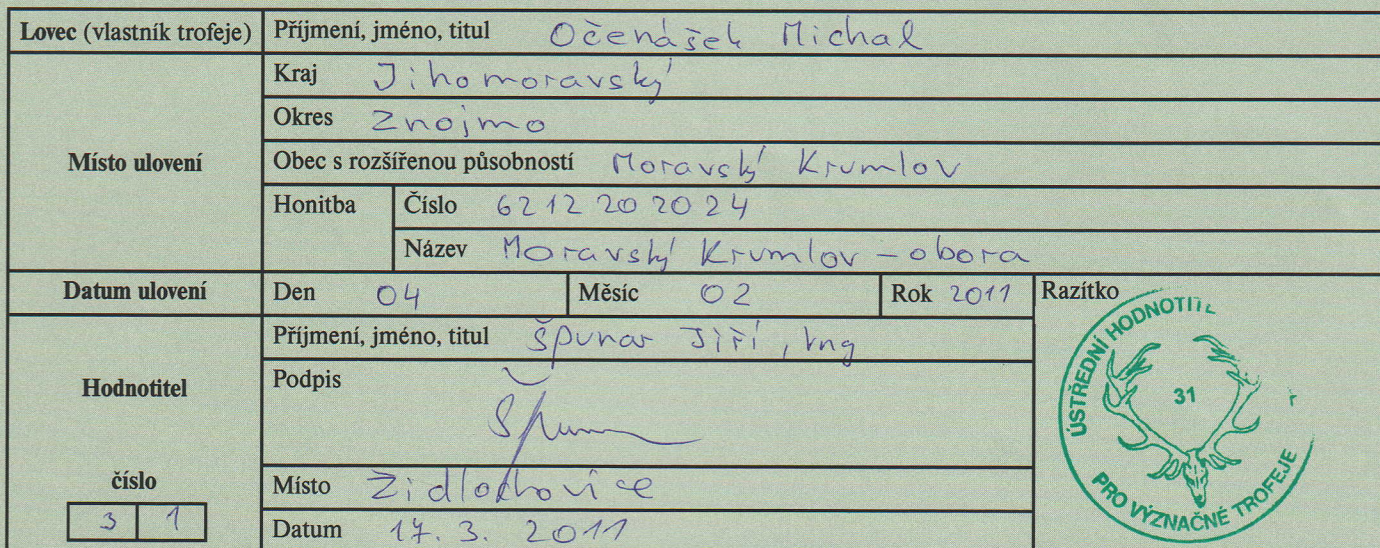 Lovec (vlastník trofeje) Příjmení, jméno, titul Očenášek Michal
Místo ulovení
Kraj Jihomoravský
Okres Znojmo
Obec s rozšířenou působností Moravský Krumlov
Honitba Číslo 6212202024
Název Moravský Krumlov - obora
Datum ulovení Den 04 Měsíc 02 Rok 2011 Razítko
Hodnotitel
Příjmení, jméno, titul Špunar Jiří, Ing
Podpis
číslo
3 1
Místo Židlochovice
Datum 17. 3. 2011
ÚSTŘEDNÍ HODNOTIT
31
PRO VÝZNAČNÉ TROFEJE